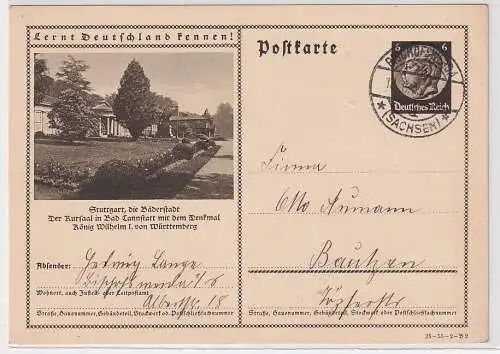 Lernt Deutschland kennen!
Postkarte
6 6
Deutsches Reich
(SACHSEN)
Stuttgart, die Bäderstadt
Der Kursaal in Bad Cannstatt mit dem Denkmal
König Wilhelm I. von Württemberg
Absender: Hedwig Lange
Bischofswerda i/S
Wohnort, auch Zustell- oder Leitpostamt
Albertstr. 18
Straße, Hausnummer, Gebäudeteil, Stockwerk od. Postschließfachnummer
Firma
Otto Aumann
Bautzen
Straße, Hausnummer, Gebäudeteil, Stockwerk oder Postschließfachnummer